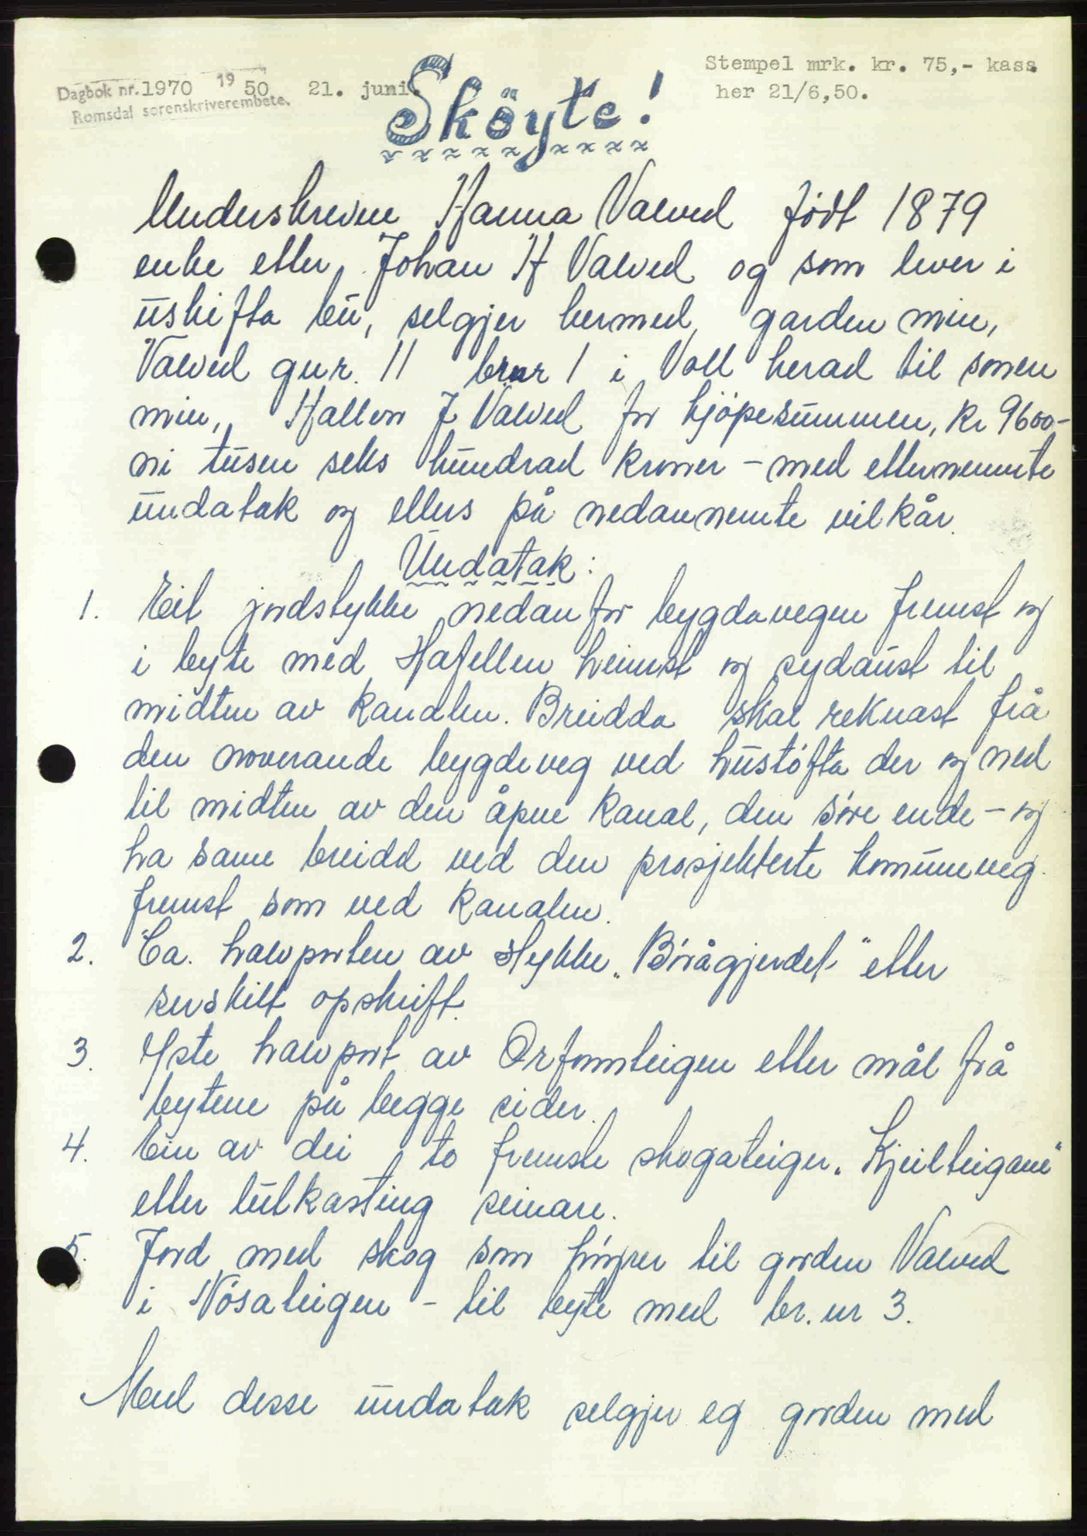 Stempel mrk. kr. 75,- kass.
her 21/6,50.
Dagbok nr.1970 19 50 21. juni.
Romsdal sorenskriverembete.
Sköyte!
Underskrevne Hanna Valved født 1879
enke etter Johan H Valved og som lever i
uskifta bu, selgjer hermed garden min,
Valved gnr. 11 brnr 1 i Voll herad til sonen
min, Hallvor J Valved for kjöpesummen, kr 9600-
ni tusen seks hundrad kroner - med etternemnte
undatak og ellers på nedannemte vilkår.
Undatak:
1. Eit jordstykke nedanfor bygdavegen fremst og
i byte med Hafellen heimst og sydaust til
midten av kanalen. Breidda skal reknast frå
den noverande bygdeveg ved hustofta der og ned
til midten av den åpne kanal, den söre ende - og
ha same breidd ved den prosjekterte komuneveg
fremst som ved kanalen.
2. Ca. halvparten av stykke "Börågjerdet" etter
serskilt opskrift.
3. Yste halvport av Orfonnteigen etter mål frå
bytene på begge sider.
4. Ein av dei to fremste skogateiger "Kjeilteigane"
etter lutkasting seinare.
5. Jord med skog som höyrer til garden Valved
i Nösateigen - til byte med br. nr 3.
Med desse undatak selgjer eg garden med